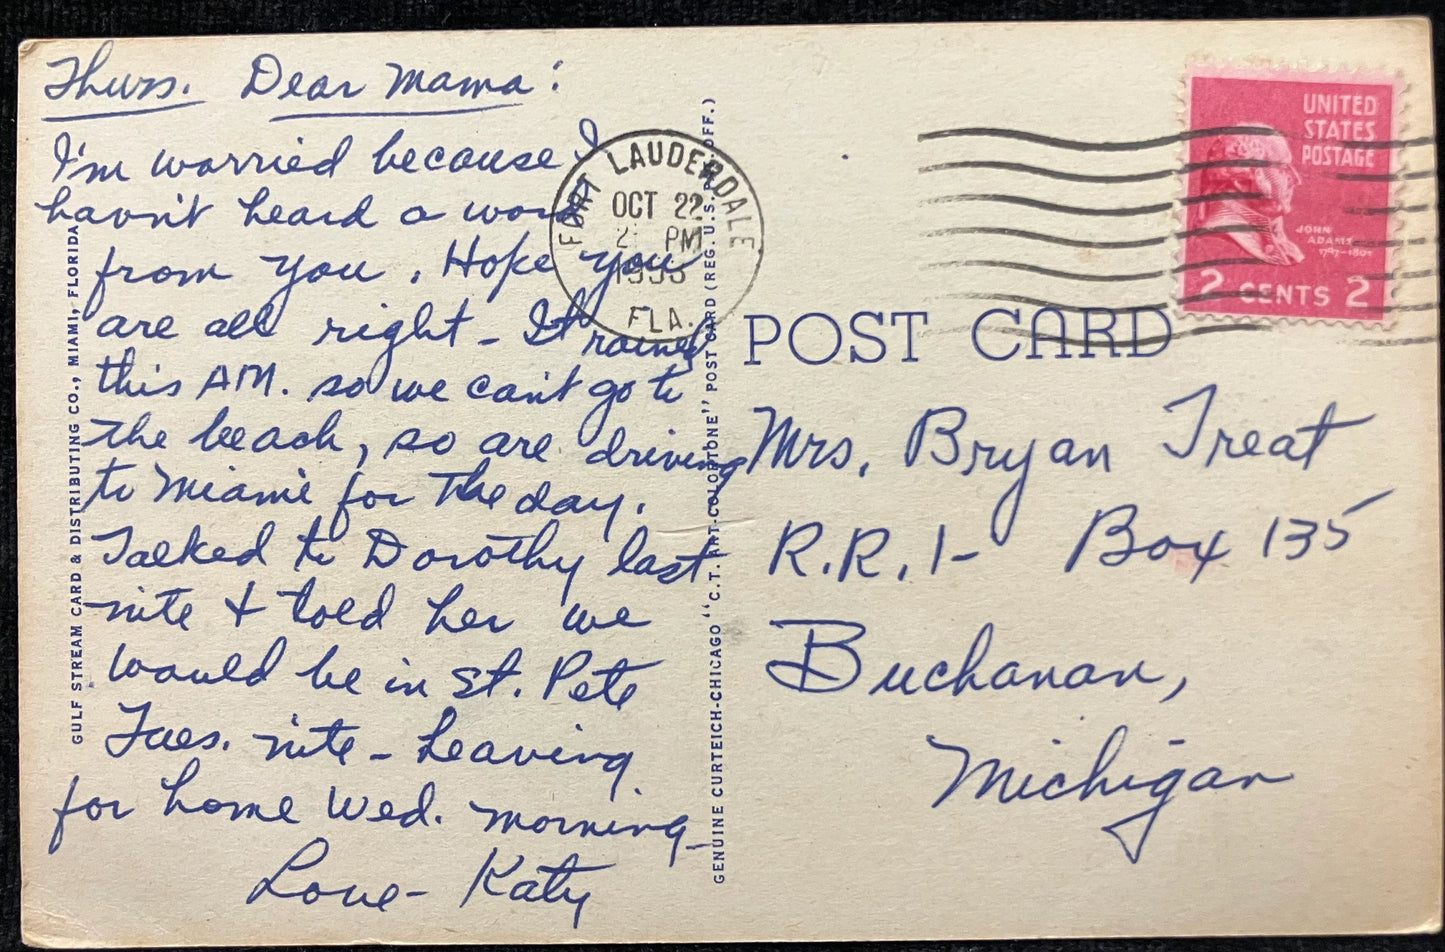 Thurs. Dear Mama:
I'm worried because I
havn't heard a word
from you. Hope you
are all right - It rained
this AM. so we can't go to
the beach, so are driving
to Miami for the day.
Talked to Dorothy last
nite & told her we
would be in St. Pete
Tues. nite - Leaving
for home Wed. morning -
Love - Katy
GULF STREAM CARD & DISTRIBUTING CO., MIAMI, FLORIDA
GENUINE CURTEICH-CHICAGO "C.T. ART-COLORTONE" POST CARD (REG. U.S. PAT. OFF.)
FORT LAUDERDALE
OCT 22
PM
FLA.
UNITED
STATES
POSTAGE
JOHN
ADAMS
1797-1801
2 CENTS 2
POST CARD
Mrs. Bryan Treat
R.R. 1- Box 135
Buchanan,
Michigan